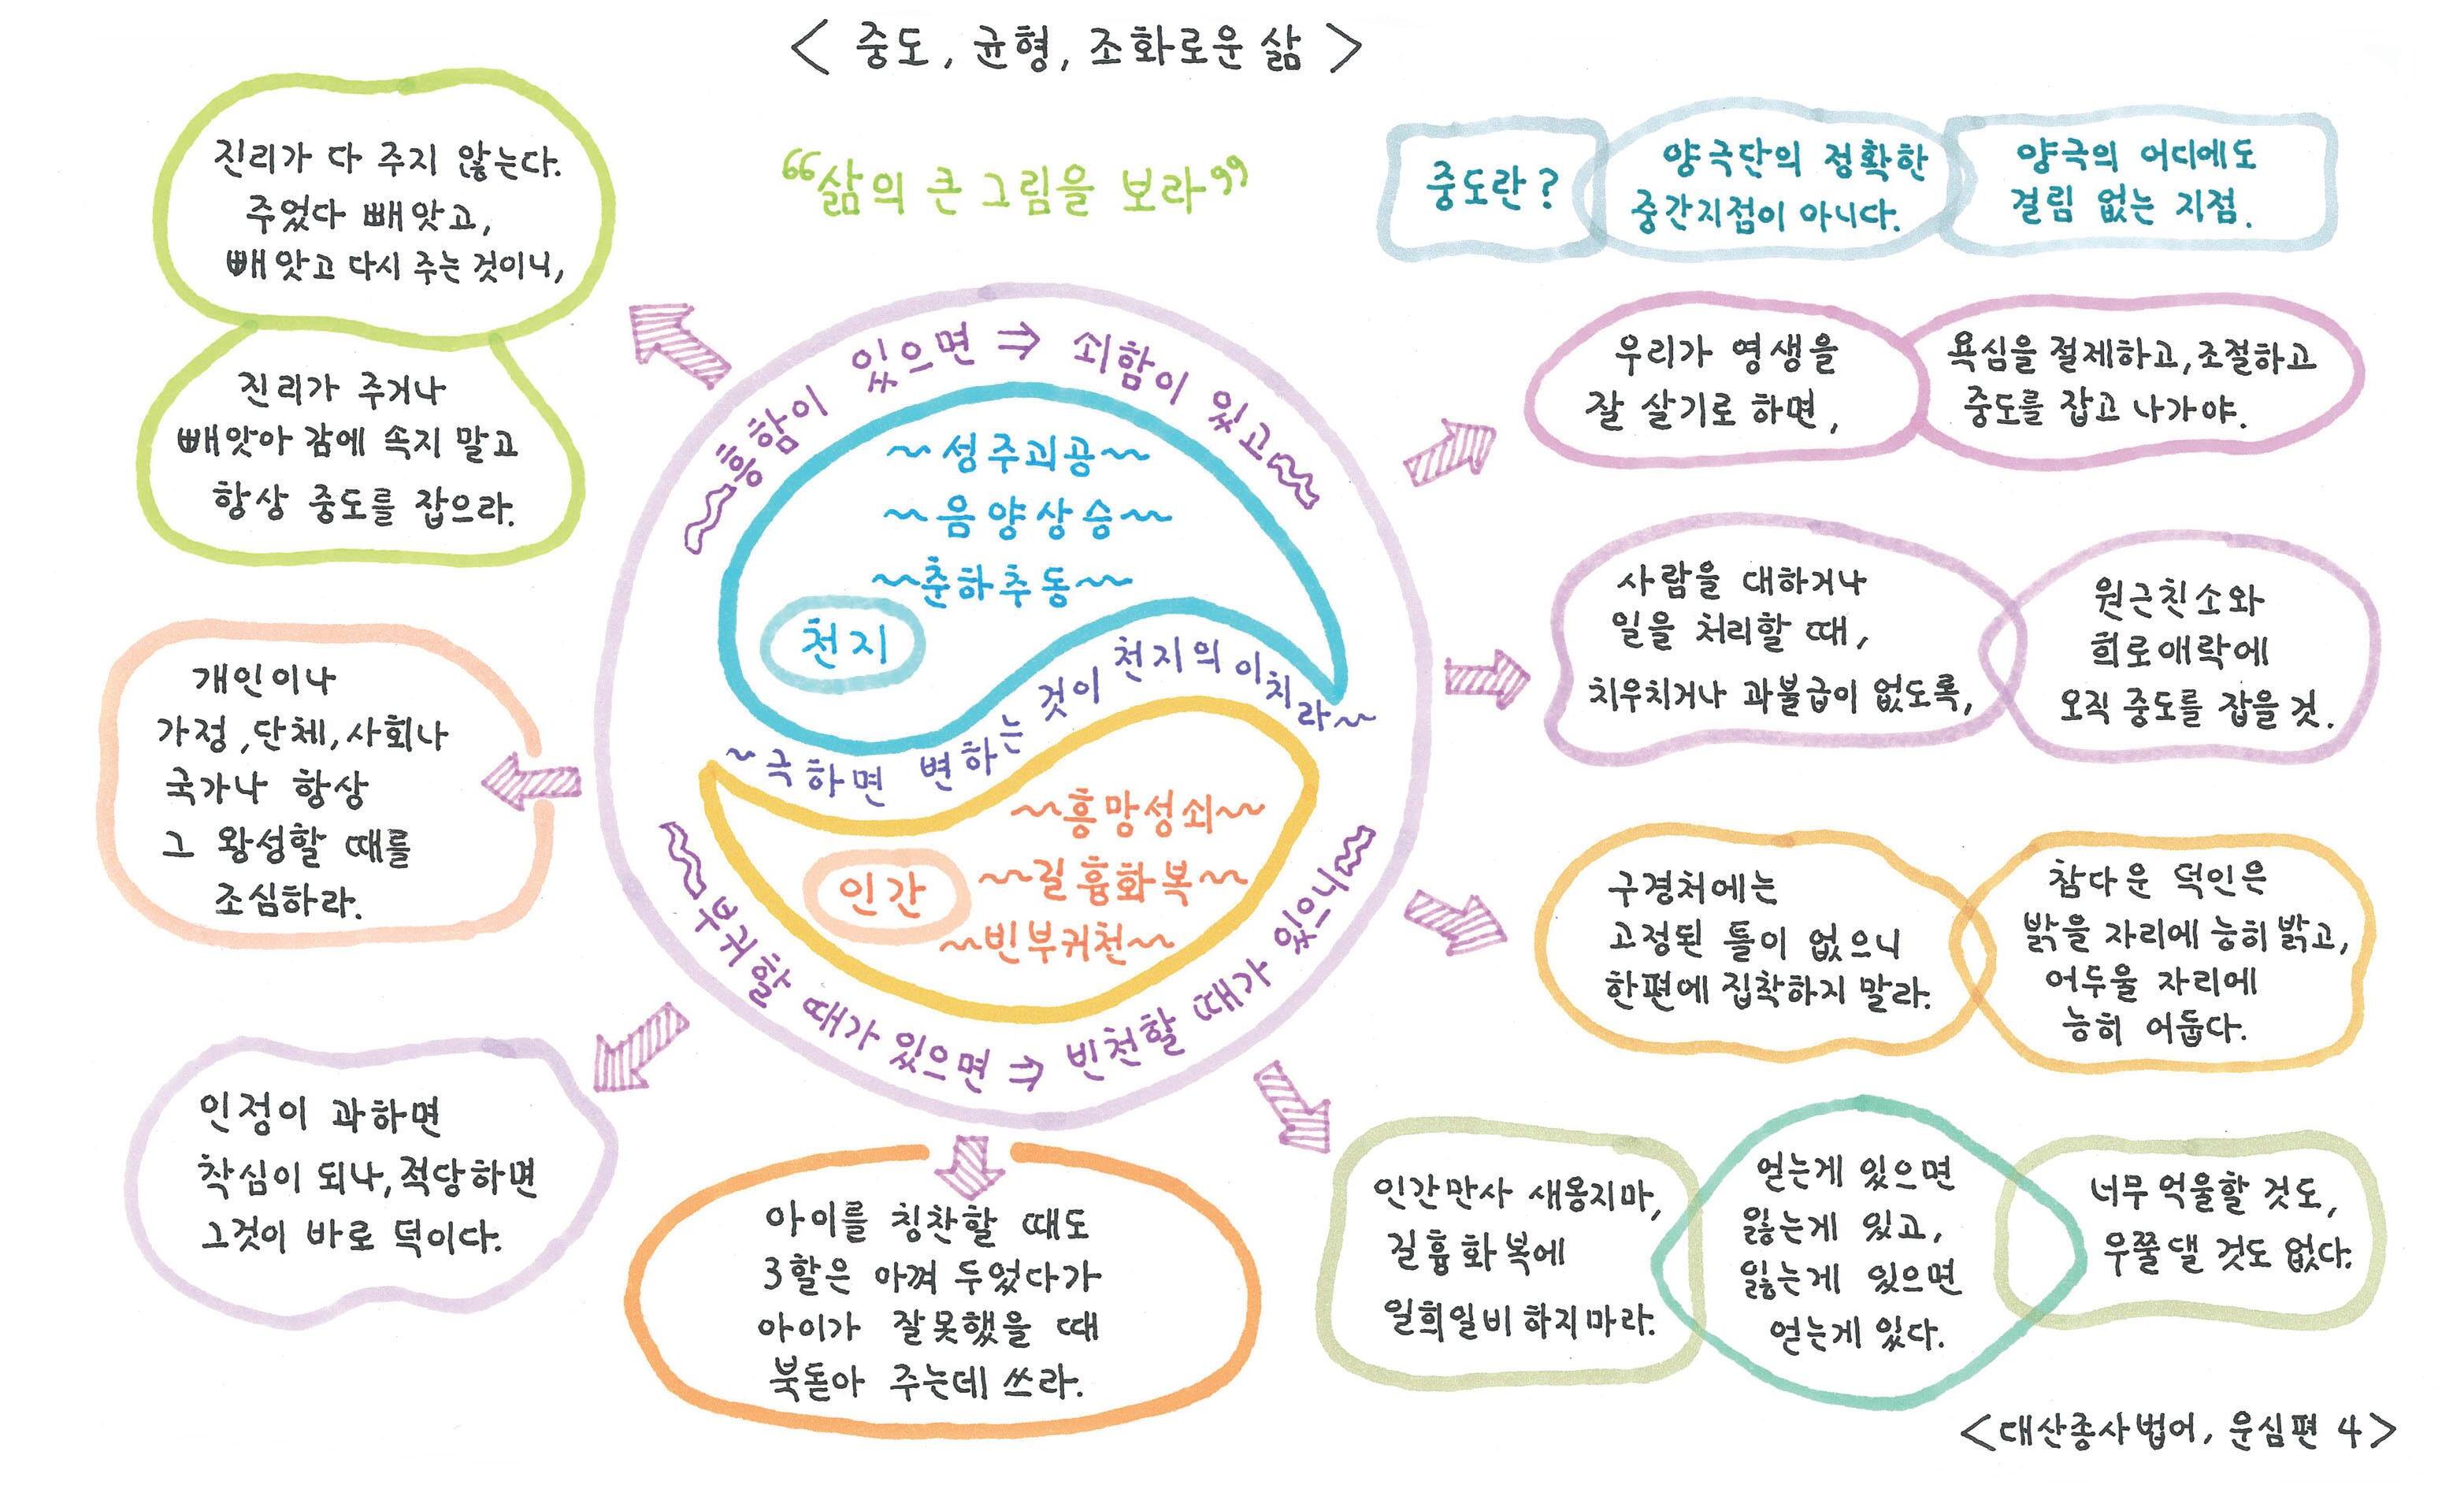 < 중도, 균형, 조화로운 삶 >
“삶의 큰 그림을 보라”
진리가 다 주지 않는다.
주었다 빼앗고,
빼앗고 다시 주는 것이니,
진리가 주거나
빼앗아 감에 속지 말고
항상 중도를 잡으라.
개인이나
가정, 단체, 사회나
국가나 항상
그 왕성할 때를
조심하라.
인정이 과하면
착심이 되나, 적당하면
그것이 바로 덕이다.
~흥함이 있으면 ⇒ 쇠함이 있고~
~성주괴공~
~음양상승~
~춘하추동~
천지
~극하면 변하는 것이 천지의 이치라~
~흥망성쇠~
인간
~길흉화복~
~빈부귀천~
~부귀할 때가 있으면 ⇒ 빈천할 때가 있으니~
아이를 칭찬할 때도
3할은 아껴 두었다가
아이가 잘못했을 때
북돋아 주는데 쓰라.
중도란?
양극단의 정확한
중간지점이 아니다.
양극의 어디에도
걸림 없는 지점.
우리가 영생을
잘 살기로 하면,
욕심을 절제하고, 조절하고
중도를 잡고 나가야.
사람을 대하거나
일을 처리할 때,
치우치거나 과불급이 없도록,
원근친소와
희로애락에
오직 중도를 잡을 것.
구경처에는
고정된 틀이 없으니
한편에 집착하지 말라.
참다운 덕인은
밝을 자리에 능히 밝고,
어두울 자리에
능히 어둡다.
인간만사 새옹지마,
길흉화복에
일희일비 하지마라.
얻는게 있으면
잃는게 있고,
잃는게 있으면
얻는게 있다.
너무 억울할 것도,
우쭐댈 것도 없다.
<대산종사법어, 운심편 4>